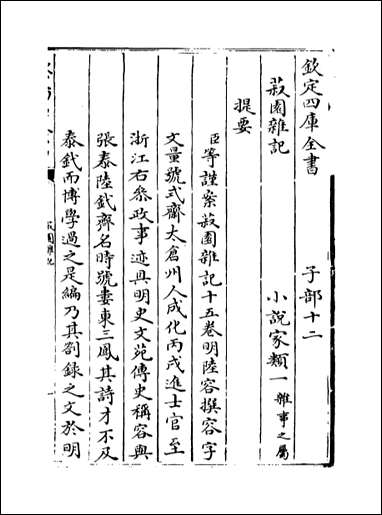 欽定四庫全書　子部十二
菽園雜記　小說家類一雜事之屬
提要
臣等謹案菽園雜記十五卷明陸容撰容字
文量號式齋太倉州人成化丙戌進士官至
浙江右叅政事迹具明史文苑傳史稱容與
張泰陸釴齊名時號婁東三鳳其詩才不及
泰釴而博學過之是編乃其劄錄之文於明
菽園雜記